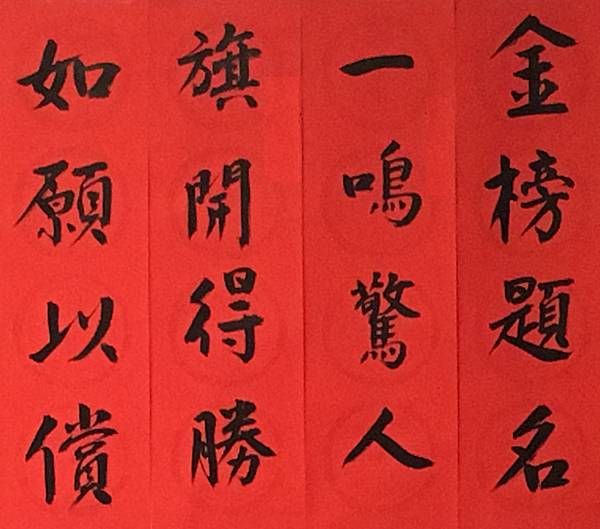 金榜題名
一鳴驚人
旗開得勝
如願以償